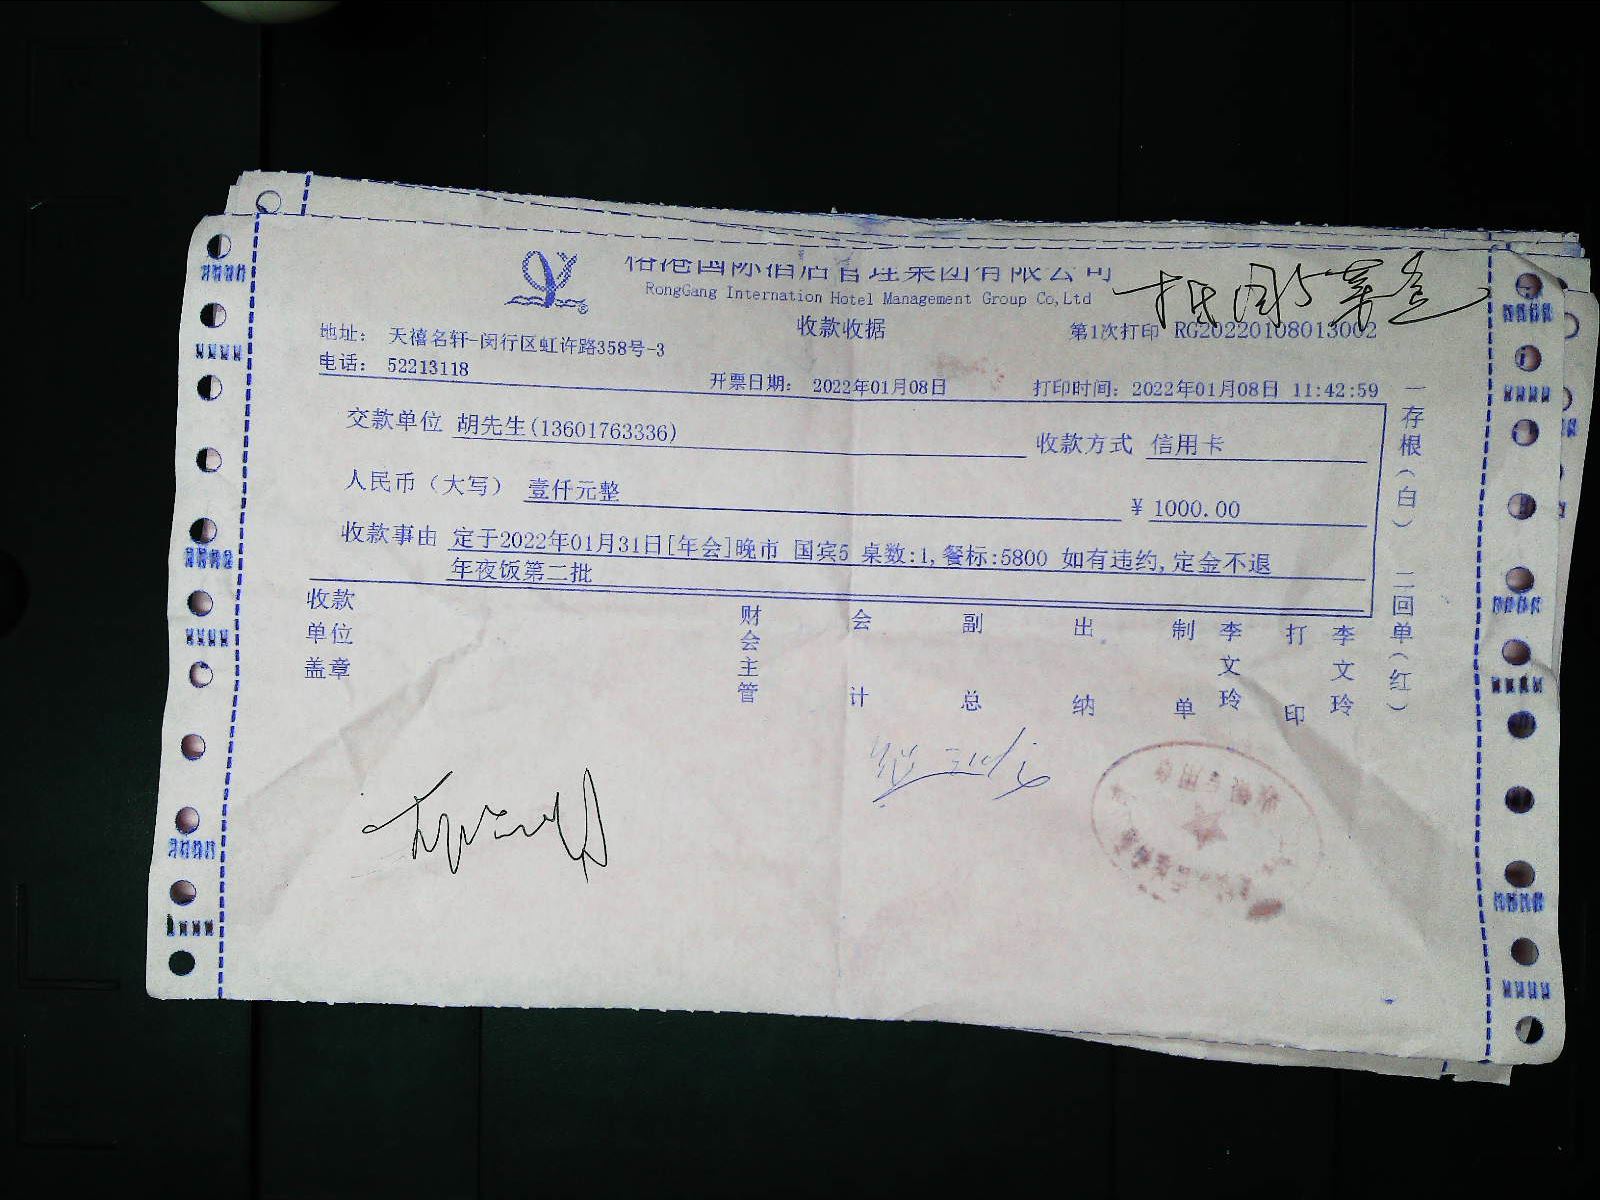 RongGang Internation Hotel Management Group Co,Ltd
收款收据
第1次打印 RG20220108013002
地址： 天禧名轩-闵行区虹许路358号-3
电话： 52213118
开票日期： 2022年01月08日
打印时间：2022年01月08日 11:42:59
交款单位 胡先生(13601763336)
收款方式 信用卡
人民币（大写） 壹仟元整
¥ 1000.00
收款事由 定于2022年01月31日[年会]晚市 国宾5 桌数:1,餐标:5800 如有违约,定金不退
年夜饭第二批
一存根（白） 二回单（红）
收款单位盖章
财会主管
会计
副总
出纳
制单 李文玲
打印 李文玲